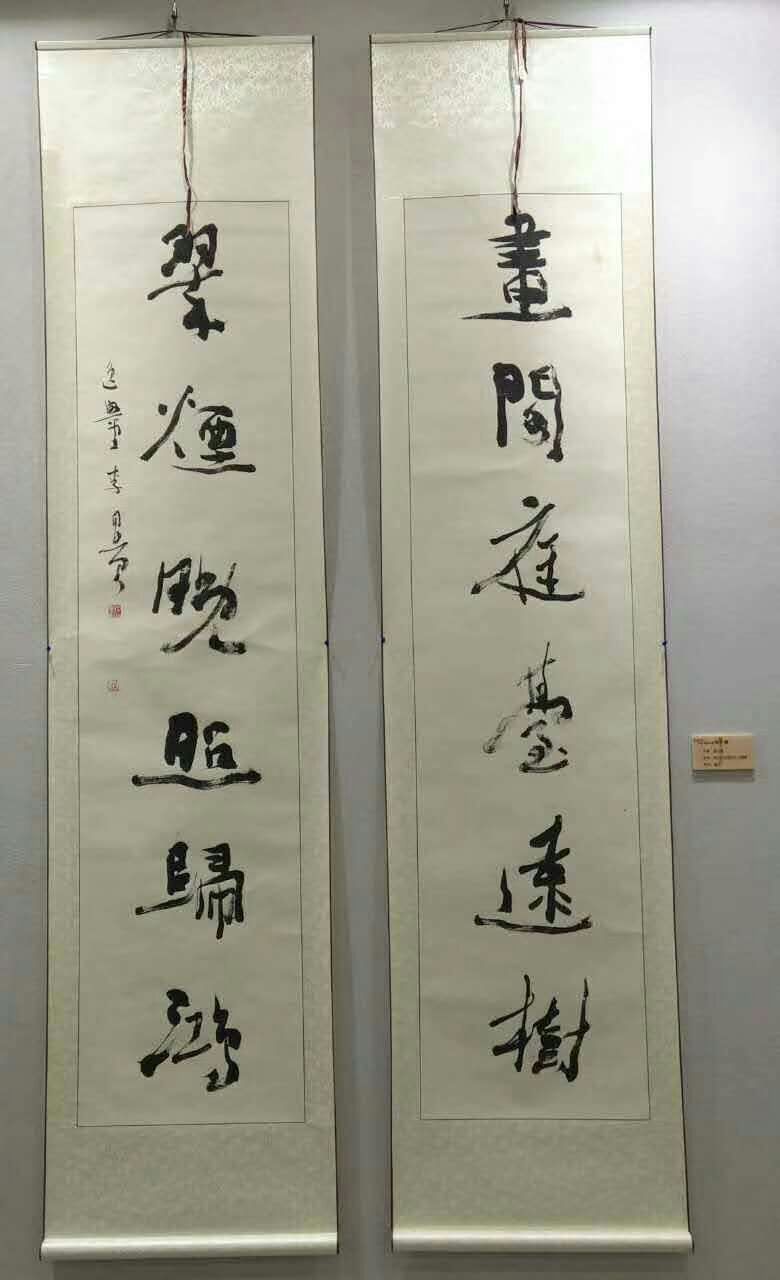 畫閣庭臺遠樹
翠煙晚照歸鴻
李